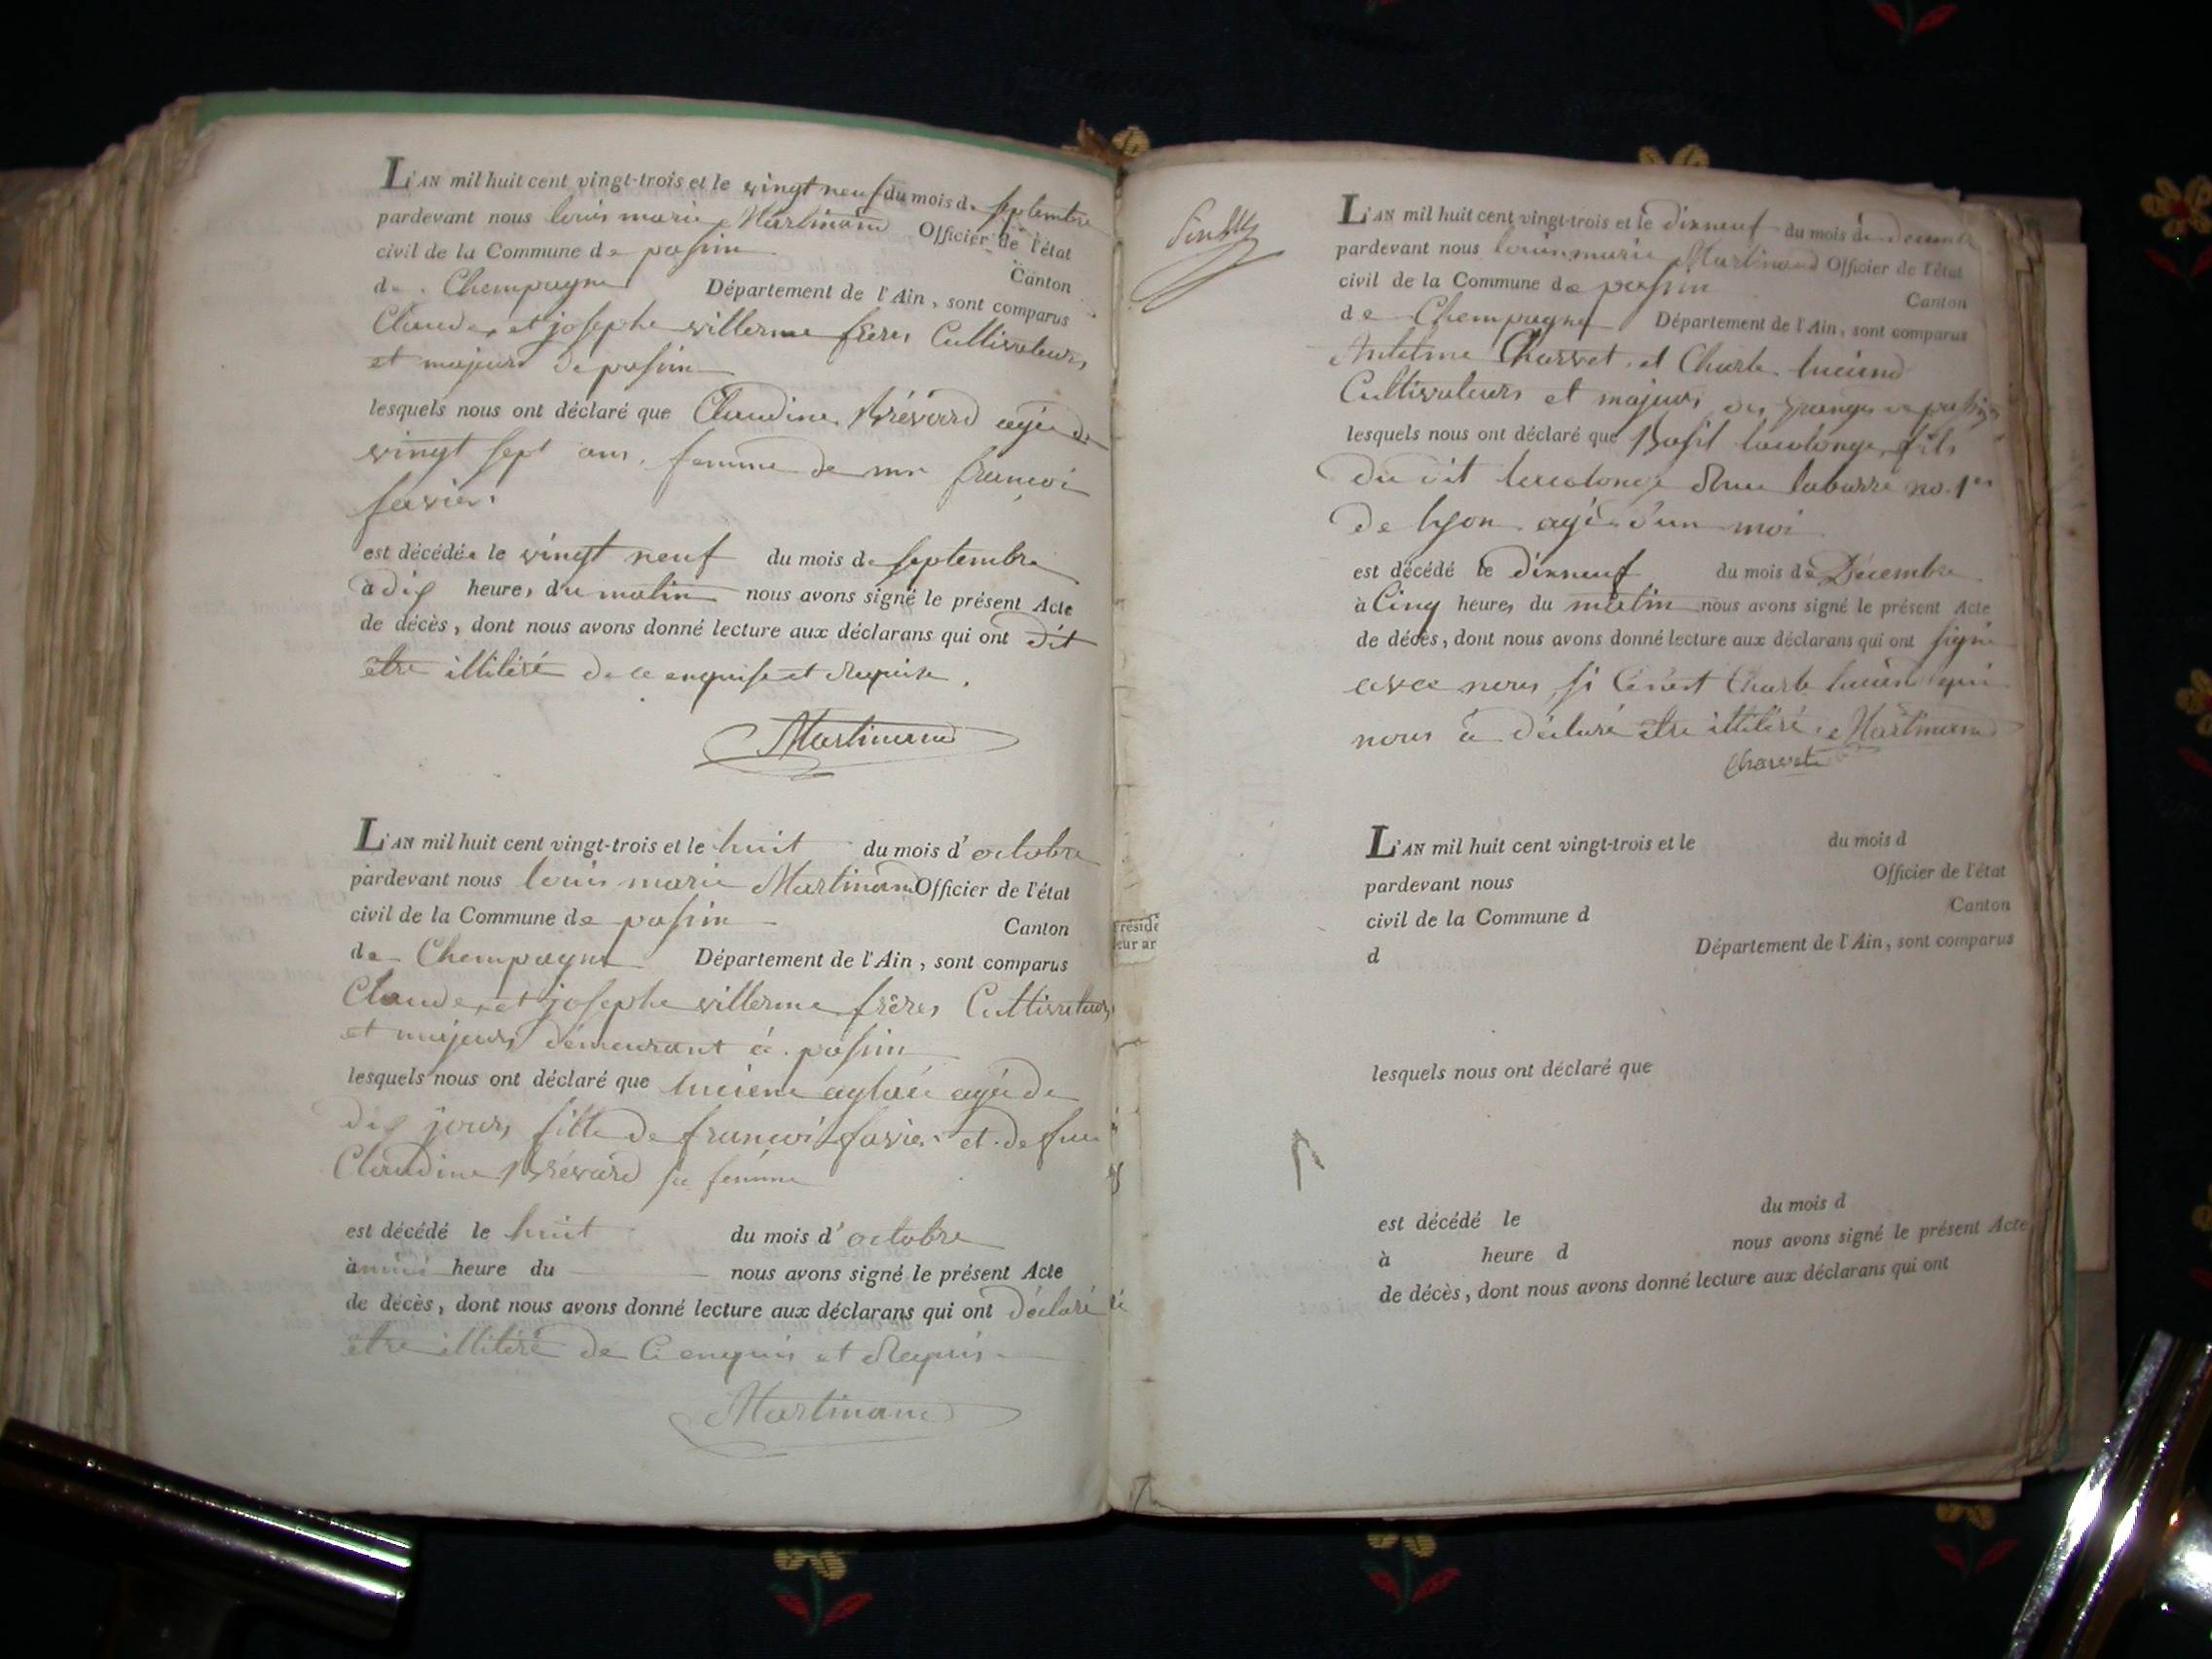 L'AN mil huit cent vingt-trois et le vingt neuf du mois de septembre
pardevant nous louis marie Martinand Officier de l'état
civil de la Commune de passin
Canton
de Champagne Département de l'Ain, sont comparus
Claude et josephe villerme frères Cultivateurs
et majeurs de passin
lesquels nous ont déclaré que Claudine Brévard agée de
vingt sept ans, femme de mr francoi
favier
est décédée le vingt neuf du mois de septembre
à dix heures du matin nous avons signé le présent Acte
de décès, dont nous avons donné lecture aux déclarans qui ont dit
etre illitiré de ce enquise et requise.
Martinand
L'AN mil huit cent vingt-trois et le huit du mois d'octobre
pardevant nous louis marie Martinand Officier de l'état
civil de la Commune de passin
Canton
de Champagne Département de l'Ain, sont comparus
Claude et josephe villerme frères Cultivateurs
et majeurs demeurant à passin
lesquels nous ont déclaré que luciene aglaée agée de
dix jours fille de francoi favier et de fue
Claudine Brévard sa femme
est décédé le huit du mois d'octobre
à midi heure du nous avons signé le présent Acte
de décès, dont nous avons donné lecture aux déclarans qui ont déclaré
etre illitiré de ce enquis et requis.
Martinand
Préside
eur ar
L'AN mil huit cent vingt-trois et le dixneuf du mois de decembre
pardevant nous louis marie Martinand Officier de l'état
civil de la Commune de passin
Canton
de Champagne Département de l'Ain, sont comparus
Antelme Charvet et Charle luciend
Cultivateurs et majeurs des granges de passin
lesquels nous ont déclaré que Basil lacolonge fils
du dit lacolonge Rue labarre no. 1er
de lyon agé d'un moi
est décédé le dixneuf du mois de Décembre
à Cinq heures du matin nous avons signé le présent Acte
de décès, dont nous avons donné lecture aux déclarans qui ont signé
avec nous si Ce n'est Charle luciend qui
nous à déclaré etre illitiré Martinand
Charvet
L'AN mil huit cent vingt-trois et le du mois d
pardevant nous Officier de l'état
civil de la Commune d
Canton
d Département de l'Ain, sont comparus
lesquels nous ont déclaré que
est décédé le du mois d
à heure d nous avons signé le présent Acte
de décès, dont nous avons donné lecture aux déclarans qui ont